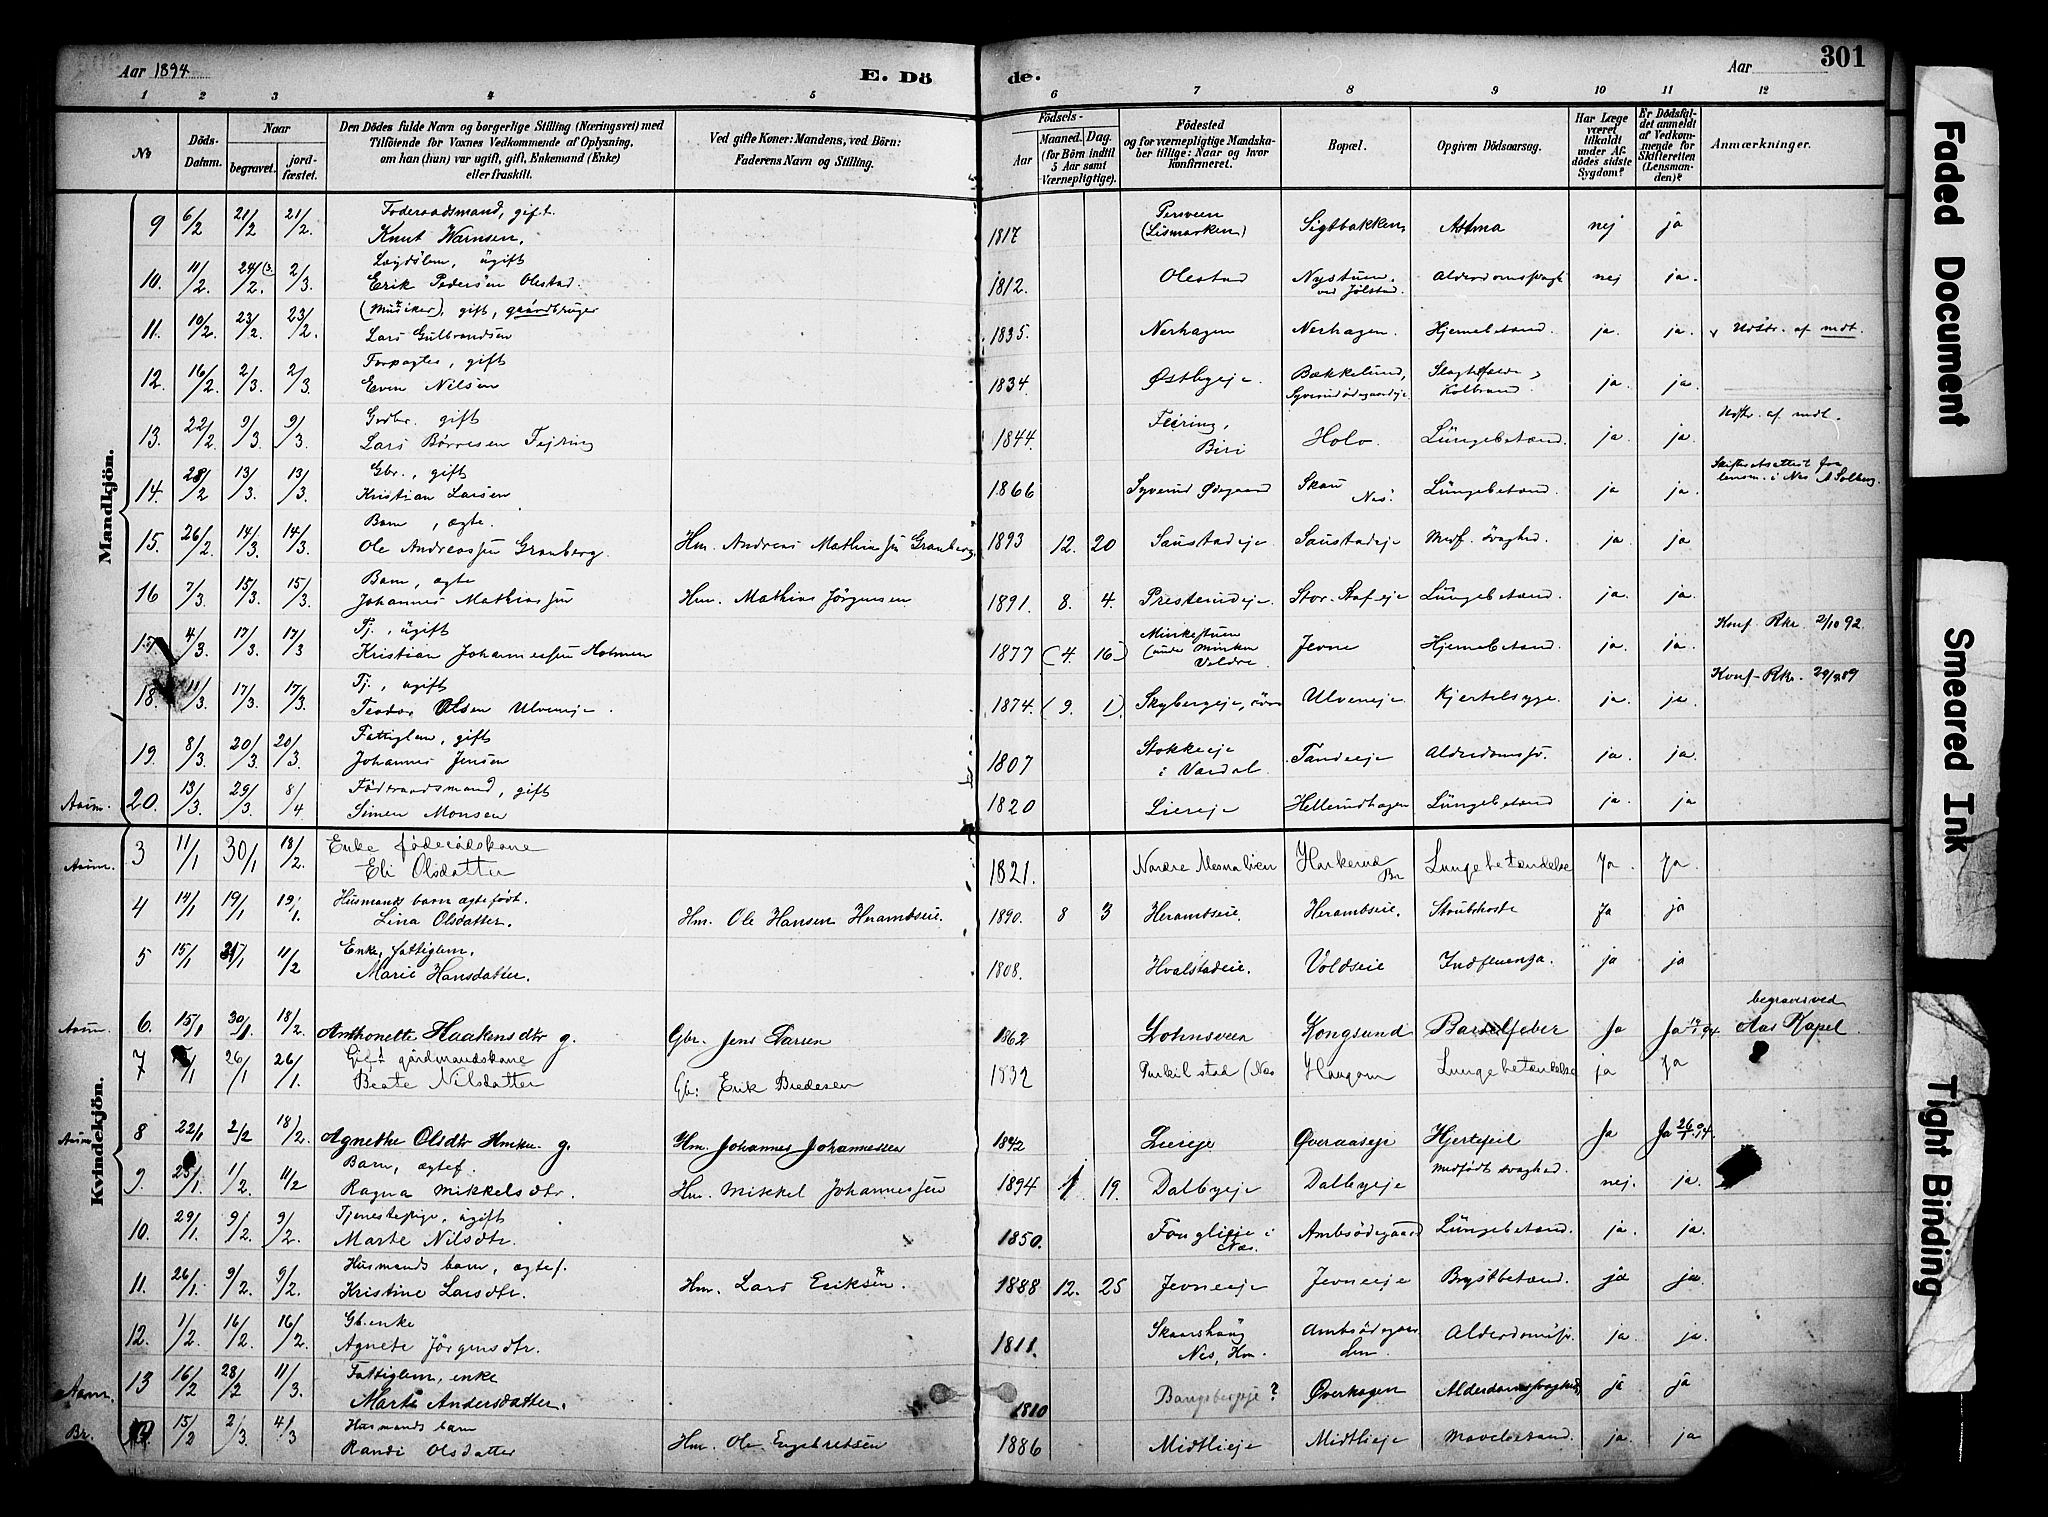 Aar 1894
E. Dö
de.
Aar
301
1 2 3 4 5 6 7 8 9 10 11 12
No
Döds-Datum.
Naar
begravet.
jord-fæstet.
Den Dödes fulde Navn og borgerlige Stilling (Næringsvei) med
Tilföiende for Voxnes Vedkommende af Oplysning,
om han (hun) var ugift, gift, Enkemand (Enke)
eller fraskilt.
Ved gifte Koner: Mandens, ved Börn:
Faderens Navn og Stilling.
Födsels-
Aar
Maaned. Dag.
(for Börn indtil
5 Aar samt
Værnepligtige).
Födested
og for værnepligtige Mandska-
ber tillige: Naar og hvor
konfirmeret.
Bopæl.
Opgiven Dödsaarsag.
Har Læge
været
tilkaldt
under Af-
dödes sidste
Sygdom?
Er Dödsfal-
det anmeldt
af Vedkom-
mende for
Skifteretten
(Lensman-
den)?
Anmærkninger.
Mandkjön.
9 6/2 21/2 21/2 Foderaadsmand, gift. Knut Warnsen, 1817 Persveen (Lismarken) Sigtbakken Astma nej ja
10. 11/2 24/2 (3. 2/3 Lægdslem, ugift Erik Pedersen Olestad. 1812. Olestad Nystuen ved Jølstad. nej ja.
11. 10/2 23/2 23/2 (Musiker), gift, gaardbruger Lars Gulbrandsen 1835. Nerhagen Nerhagen. Hjernebetænd. ja. ja. Udstr. af mdt
12. 16/2 2/3 2/3 Forpagter, gift Even Nilsen 1834 Østbyeje. Bækkelund, Koldbrand. ja. ja.
13. 22/2 9/3 9/3 Grdbr. gift Lars Børresen Fejring 1844. Feiring, Biri Holo. Lüngebetænd. ja. ja. af mdt.
14. 28/2 13/3 13/3 Gbr., gift Kristian Larsen 1866 Syverud Ødegaard Skau Nes. Lüngebetænd. ja ja. lensm. i Nes A Solberg.
15. 26/2 14/3 14/3 Barn, ægte. Ole Andreassen Granberg. Hm. Andreas Mathiassen Granberg. 1893 12. 20 Saustadeje. Saustadeje Medf. svaghed. ja ja.
16 7/3. 15/3. 15/3 Barn, ægte Johannes Mathiassen Hm. Mathias Jørgensen 1891. 8. 4. Presterudeje. Stor-Stafeje Lüngebetænd. ja. ja.
17 4/3. 17/3. 17/3 Tj., ugift Kristian Johannessen Holmen 1877 (4. 16) Minkestuen (under Minken Veldre Jevne Hjernebetænd. ja. ja. Konf. Rkr. 2/10 92.
18. 11/3 17/3. 17/3. Tj., ugift Teodor Olsen Ulveneje. 1874. (9. 1) Skybergeje, Ulveneje. Kjertelsyge. ja. ja. Konf-Rkr. 29/9 89
19. 8/3. 20/3. 20/3. Fattiglem, gift Johannes Jensen 1807 Stokkeeje i Vardal. Tandeeje Alderdomssv. ja. ja.
Aasm. 20. 13/3 29/3. 8/4 Föderaadsmand, gift Simen Monsen 1820 Liereje Hellerudhagen Lüngebetænd ja. ja
Kvindekjön.
Aasm. 3 11/1 30/1 18/2. Enke föderådskone Eli Olsdatter 1821. Nordre Mesnalien Harkerud Br Lungebetændelse Ja Ja.
4 14/1 19/1 19/1. Husmands barn ægte født. Lina Olsdatter. Hm. Ole Hansen Herambseie. 1890. 8 3 Herambseie. Herambseie. Strubehoste Ja ja
5 15/1 1 11/2 Enke, fattiglem. Marie Hansdatter. 1808. Hvalstadeie. Voldseie Indfluenza. ja ja
Aasm. 6. 15/1 30/1. 18/2. Anthonette Haakensdtr g. Gbr. Jens Larsen 1862 Lohnsveen Kongsund Barselfeber Ja Ja begraves ved Aas Kapel.
7 1 26/1 26/1. Gift gårdmandskone Beate Nilsdatter Gb: Erik Bredesen 1832 (Nes Haugom Lungebetændelse ja Ja
Aasm 8 22/1 2/2 18/2. Agnethe Olsdtr g. Hm. Johannes Johannessen 1842 Liereje Overaaseje Hjertefeil Ja Ja 26/1 94.
9. 25/1. 1/2. 11/2 Barn, ægtef. Ragna Mikkelsdtr. Hm. Mikkel Johannessen 1894 1 19. Dalbyeje. Dalbyeje Medfødt svaghed. nej. ja.
10. 29/1. 9/2. 9/2. Tjenestepige, ugift Marte Nilsdtr. 1850. i Nes. Ambsødegaard Lüngebetænd. ja. ja.
11. 26/1. 9/2. 9/2. Husmands barn, ægtef. Kristine Larsdtr. Hm. Lars Eriksen. 1888 12. 25 Jevneeje Jevneeje Brystbetænd. ja ja.
12. 1/2. 16/2. 16/2. Gb.enke Agnete Jörgensdtr. 1811. Skaarshaug Nes, Hm. Alderdomssv. ja. ja.
Aasm. 13 16/2 28/2 11/3. Fattiglem, enke Marte Andersdatter. 1810 Bangsbergeje? Overhagen Alderdomssvaghed ja ja
Br. 14. 15/2 2/3. 4/3 Husmands barn Randi Olsdatter Hm. Ole Engebretsen 1886 Midtlieje Midtlieje Mavebetænd. ja. ja
Faded Document
Smeared Ink
Tight Binding